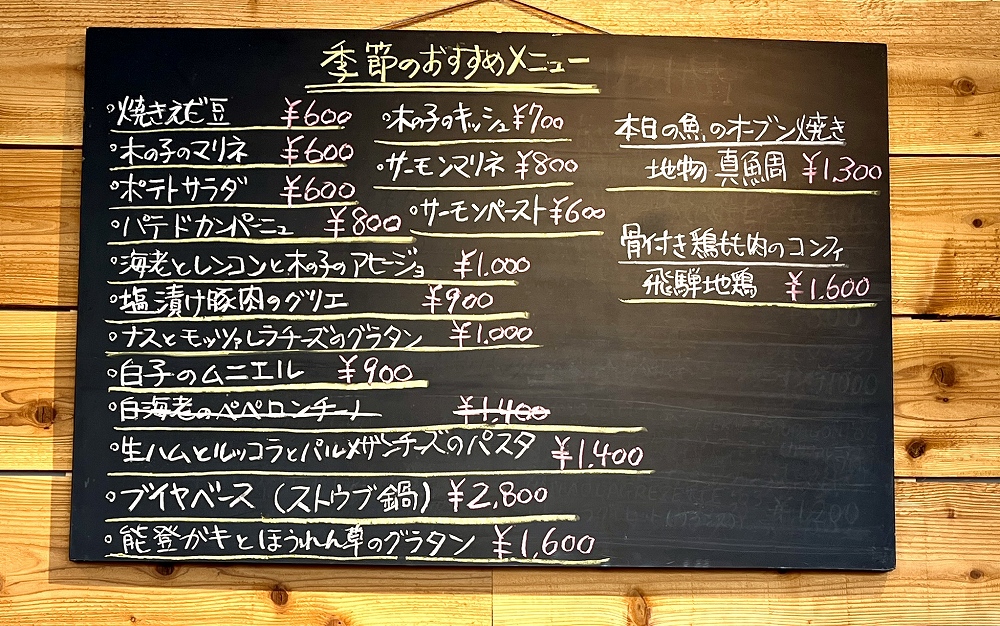 季節のおすすめメニュー
焼きえだ豆 ¥600
木の子のマリネ ¥600
ポテトサラダ ¥600
パテドカンパーニュ ¥800
海老とレンコンと木の子のアヒージョ ¥1.000
塩漬け豚肉のグリエ ¥900
ナスとモッツァレラチーズのグラタン ¥1.000
白子のムニエル ¥900
白海老のペペロンチーノ ¥1.400
生ハムとルッコラとパルメザンチーズのパスタ ¥1.400
ブイヤベース (ストウブ鍋) ¥2,800
能登がキとほうれん草のグラタン ¥1,600
木の子のキッシュ ¥700
サーモンマリネ ¥800
サーモンペースト ¥600
本日の魚のオーブン焼き
地物 真鯛 ¥1,300
骨付き鶏もも肉のコンフィ
飛騨地鶏 ¥1.600